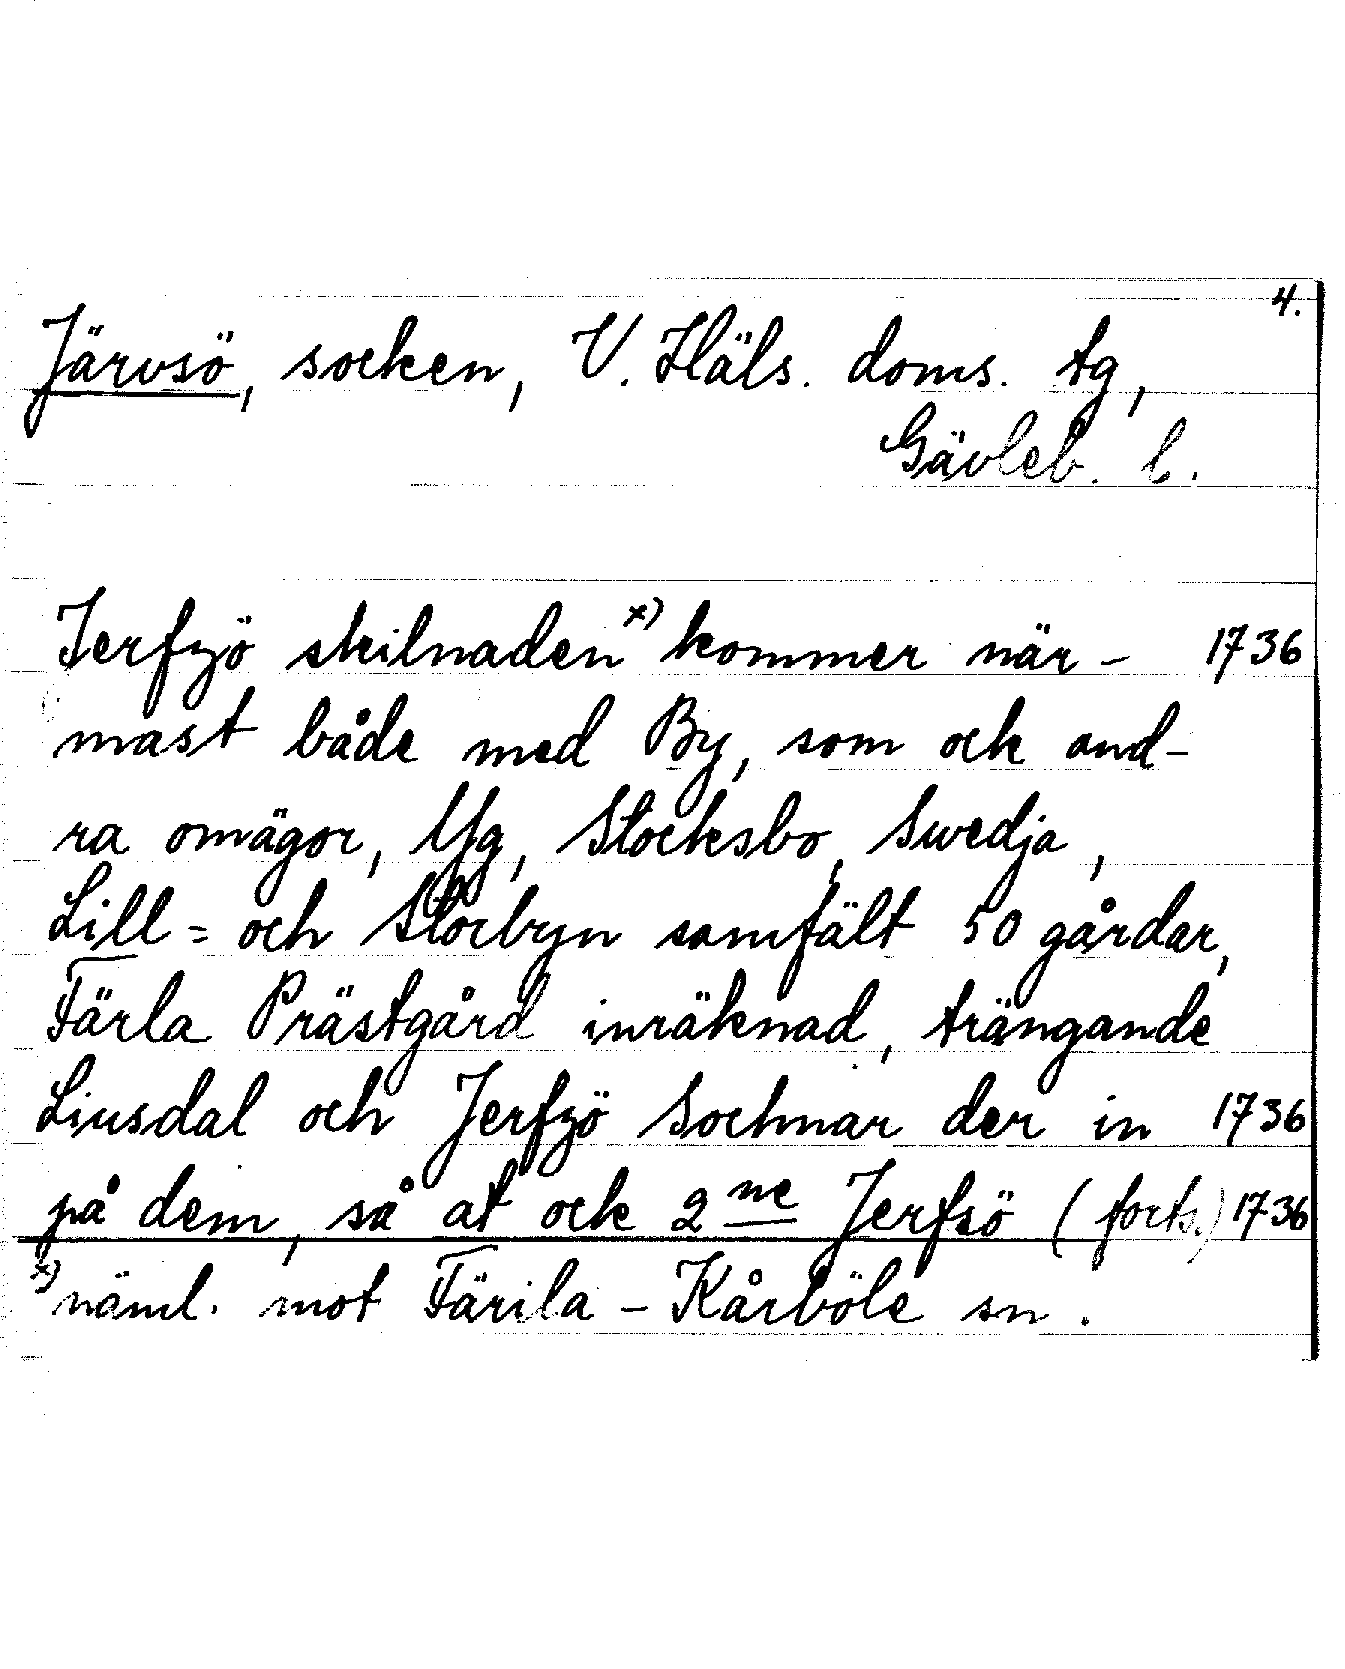 4.
Järvsö, socken, V. Häls. doms. tg,
Gävleb. l.
Jerfzö skilnaden x) kommer när- 1736
mast både med By, som ock and-
ra omägor, Yg, Stocksbo, Swedja,
Lill= och Storbyn samfält 50 gårdar,
Färla Prästgård inräknad, trängande
Liusdal och Jerfzö Sochnar der in 1736
på dem, så at ock 2ne Jerfsö (forts.) 1736
x) näml. mot Färila-Kårböle sn.